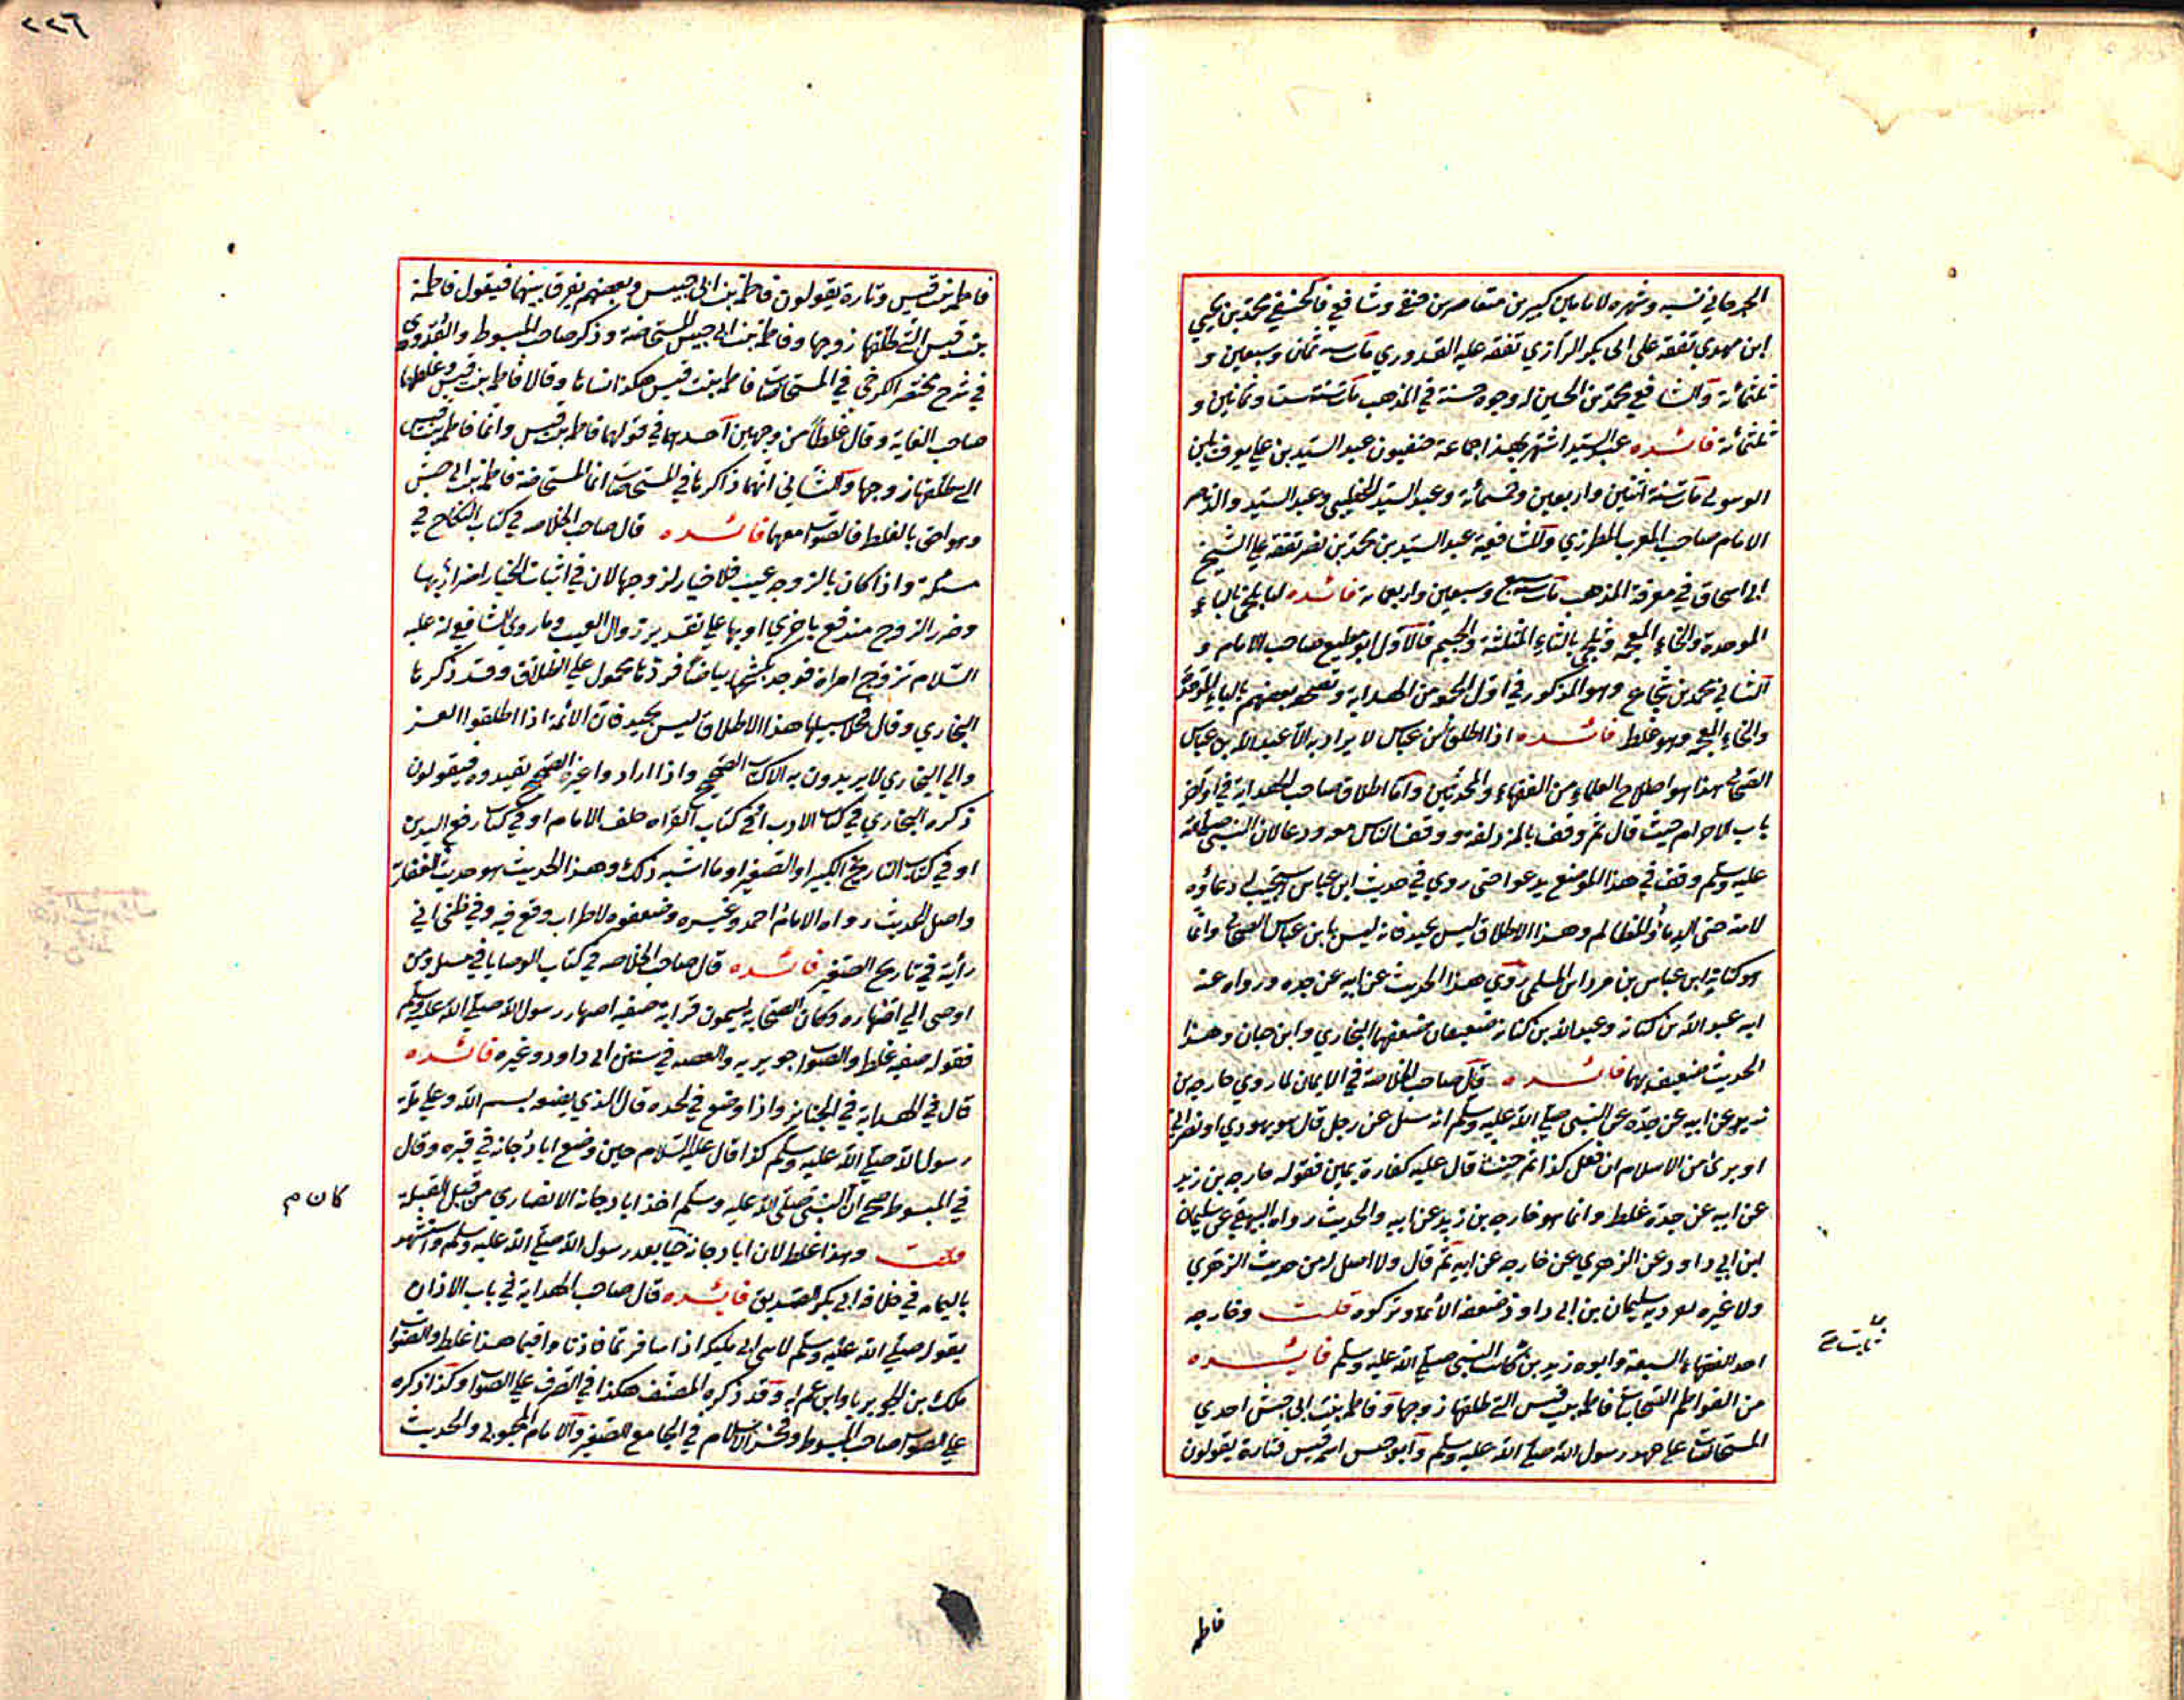 الجرجاني نسبه وشهره لامامين كبيرين متعاصرين حنفي وشافعي فالحنفي محمد بن يحيي
ابن مهدي تفقه علي ابي بكر الرازي تفقه عليه القدوري مات سنة ثمان وسبعين و
ثلثمائة والشافعي محمد بن الحسين له وجوه حسنة في المذهب مات سنة ست وثمانين و
ثلثمائة فائده عبد السيد اشتهر بهذا جماعة حنفيون عبد السيد بن علي يعرف بابن
مات سنة اثنين واربعين وخمسمأئة وعبد السيد الخطيبي وعبد السيد والد ناصر
الامام صاحب المغرب المطرزي والشافعية عبد السيد بن محمد بن نصر تفقه علي الشيخ
ابي اسحاق في معرفة المذهب مات سنة سبع وسبعين واربعمائة فائده البلخي بالباء
الموحدة والخاء المعجمة وثلجي بالثاء المثلثة والجيم فالاول ابو مطيع صاحب الامام و
الثاني محمد بن شجاع وهو المذكور في اول من الهداية وتصحفه بعضهم بالباء الموحدة
والخاء المعجمة وهو غلط فائده اذا اطلق ابن عباس لا يراد به الا عبد الله بن عباس
الصحابي هذا هو اصطلاح العلماء من الفقهاء والمحدثين وأما اطلاق صاحب الهداية في اواخر
باب الاحرام حيث قال ثم وقف بالمزدلفة ووقف الناس معه ودعا لان النبي صلي الله
عليه وسلم وقف في هذا الموضع يدعو حتى روي في حديث ابن عباس استجيب له دعاؤه
لامته حتى الدماء والمظالم وهذا الاطلاق ليس بجيد فانه ليس بابن عباس الصحابي وانما
هو كنانة ابن عباس بن مرداس السلمي روي هذا الحديث عن ابيه عن جده ورواه عنه
ابنه عبد الله بن كنانة وعبد الله بن كنانة ضعيفان ضعفهما البخاري وابن حبان وهذا
الحديث ضعيف بهما فائده قال صاحب الخلاصة في الايمان لما روي خارجه بن
زيد عن ابيه عن جدّه عن النبي صلي الله عليه وسلم انه سئل عن رجل قال هو يهودي او نصراني
او بريء من الاسلام ان فعل كذا ثم حنث قال عليه كفارة يمين فقوله خارجه بن زيد
عن ابيه عن جدّه غلط وانما هو خارجه بن زيد عن ابيه والحديث رواه البيهقي عن سليمان
ابن ابي داود عن الزهري عن خارجه عن ابيه ثم قال ولا اصل له من حديث الزهري
ولا غيره به سليمان بن ابي داود ضعفه الأئمة وتركوه قلت وخارجه
احد الفقهاء السبعة وابوه زيد بن ثابت النبي صلي الله عليه وسلم فائده
من الفواطم الصحابيات فاطمه بنت قيس التي طلقها زوجها وفاطمه بنت ابي حبيش احدي
المستحاضات علي عهد رسول الله صلي الله عليه وسلم وابو حبيش اسمه قيس فتارة يقولون
فاطمه
٢٢٦
فاطمه بنت قيس وتارة يقولون فاطمه بنت ابي حبيش وبعضهم يفرق بينهما فيقول فاطمة
بنت قيس التي طلقها زوجها وفاطمه بنت ابي حبيش المستحاضة وذكر صاحب المبسوط والقدوري
في شرح مختصر الكرخي في المستحاضات فاطمه بنت قيس هكذا وقالا فاطمه بنت قيس وغلطهما
صاحب الغاية وقال غلطا من وجهين احدهما في قولهما فاطمه بنت قيس وانما فاطمه بنت قيس
التي طلقها زوجها والثاني انهما ذكراها في المستحاضات انما المستحاضة فاطمه بنت ابي حبيش
وهو احق بالغلط فالصواب معهما فائده قال صاحب الخلاصه في كتاب النكاح في
مسئلة واذا كان بالزوجه عيب فلا خيار لزوجها لان في اثبات الخيار اضرارا بها
وضرر الزوج مندفع باخري او بها علي تقدير زوال العيب وما روي الشافعي انه عليه
السلام تزوج امراة فوجد بكشحها بياضا فردها محمول علي الطلاق وقد ذكرنا
البخاري وقال هذا الاطلاق ليس بجيد فان الأئمة اذا اطلقوا العز
والي البخاري لا يريدون به الا كتاب الصحيح واذا ارادوا غير الصحيح يقيدوه فيقولون
ذكره البخاري في كتاب الادب او في كتاب القراة خلف الامام او في كتاب رفع اليدين
او في كتاب التاريخ الكبير او الصغير او ما اشبه ذلك وهذا الحديث هو حديث الغفارية
واصل الحديث رواه الامام احمد وغيره وضعفوه لاضطراب وقع فيه وفي ظني اني
رأيته في تاريخ الصغير فائده قال صاحب الخلاصه في كتاب الوصايا في مسئلة ومن
اوصى الي اصهاره وكان الصحابه يسمون قرابة صفيه اصهار رسول الله صلي الله عليه وسلم
فقوله صفيه غلط والصواب جويريه والقصه في سنن ابي داود وغيره فائده
قال في الهداية في الجنايز واذا وضع في لحده قال الذي يضعه بسم الله وعلي ملة
رسول الله صلي الله عليه وسلم كذا قال عليه السلام حين وضع ابا دجانة في قبره وقال
في المبسوط صح ان النبي صلي الله عليه وسلم اخذ ابا دجانة الانصاري من قبل القبلة
قلت وهذا غلط لان ابا دجانة حيا بعد رسول الله صلي الله عليه وسلم واستشهد
باليمامه في خلافة ابي بكر الصديق فائده قال صاحب الهداية في باب الاذان
بقوله صلي الله عليه وسلم لابني ابي مليكة اذا سافرتما فاذنا واقيما هذا غلط والصواب
ملك بن الحويرث وابن عم له وقد ذكره المصنف هكذا في الصرف علي الصواب وكذا ذكره
علي الصواب صاحب المبسوط وفخر الاسلام في الجامع الصغير والامام المحبوبي والحديث
كان م